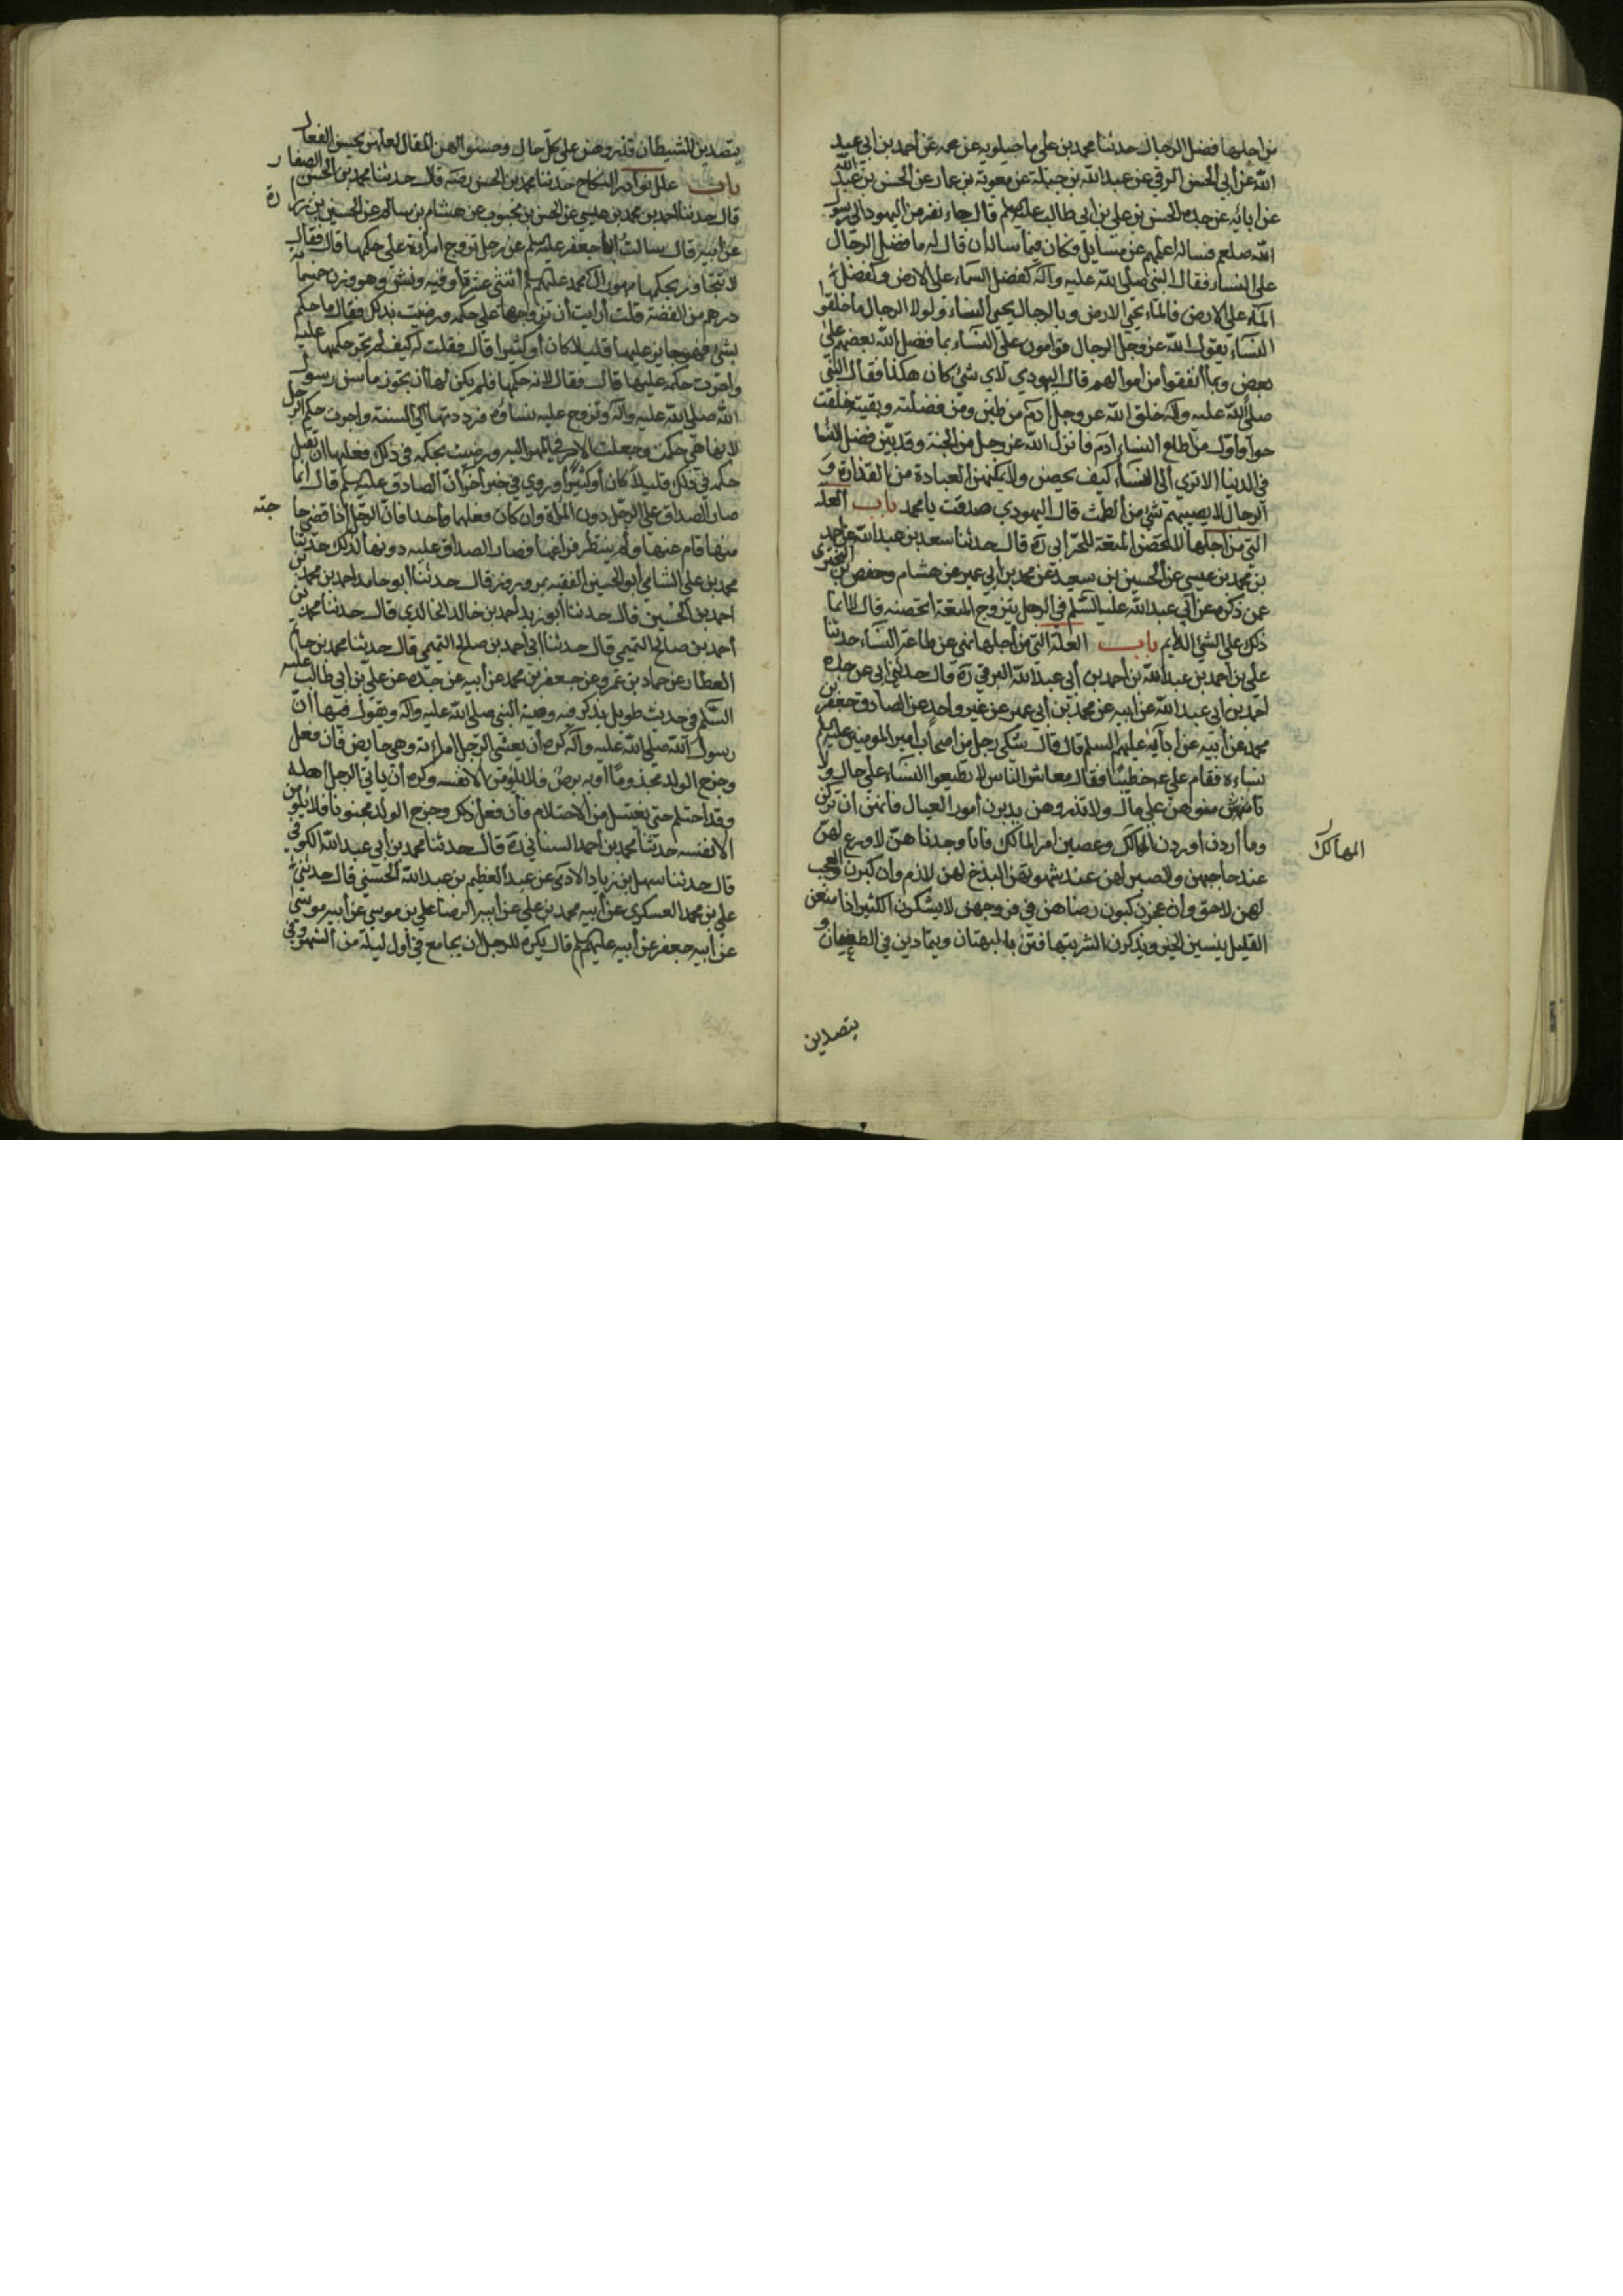 من اجلها فضل الرجال حدثنا محمد بن علي ماجيلويه عن عمه عن أحمد بن ابي عبد
الله عن أبي الحسن البرقي عن عبد الله بن جبلة عن معوية بن عمار عن الحسن بن عبد الله
عن ابائه عن جده الحسن بن علي بن ابي طالب عليهم قال جاء نفر من اليهود الى رسول
الله صلعم فساله اعلمهم عن مسايل وكان فيما ساله ان قال له ما فضل الرجال
على النساء فقال النبي صلى الله عليه وآله كفضل السماء على الارض وكفضل
الماء على الارض فالماء يحيي الارض وبالرجال يحيي النساء ولولا الرجال ما خلقوا
النساء يقول الله عز وجل الرجال قوامون على النساء بما فضل الله بعضهم على
بعض وبما انفقوا من اموالهم قال اليهودي لاي شئ كان هكذا فقال النبي
صلى الله عليه وآله خلق الله عز وجل ادم من طين ومن فضلته وبقيته خلقت
حوا واول من اطاع النساء ادم فانزله الله عز وجل من الجنة وقد بين فضل الرجال على النسا
في الدنيا الا ترى الى النساء كيف يحيضن ولا يمكنهن العبادة من القذارة و
الرجال لا يصيبهم شئ من الطمث قال اليهودي صدقت يا محمد باب العلة
التي من اجلها لا تحصن المتعة الحر أبي ره قال حدثنا سعد بن عبد الله عن احمد
بن محمد بن عيسى عن الحسين بن سعيد عن محمد بن ابي عمير عن هشام وحفص بن البختري
عمن ذكره عن ابي عبد الله عليه السلم في الرجل يتزوج المتعة اتحصنه قال لا انما
ذلك على الشئ الدايم باب العلة التي من أجلها نهى عن طاعة النساء حدثنا
علي بن احمد بن عبد الله بن احمد بن أبي عبد الله البرقي ره قال حدثني ابي عن جده
احمد بن ابي عبد الله عن ابيه عن محمد بن أبي عمير عن غير واحد عن الصادق جعفر بن
محمد عن أبيه عن ابآيه عليهم السلم قال قال شكى رجل من اصحاب امير المومنين عليهم
نساءه فقام علي ع خطيبا فقال معاشر الناس لا تطيعوا النساء على حال ولا
تامنوهن على مال ولا تذروهن يدبرن أمور العيال فانهن ان تركن
وما أردن اوردن المهالك وعصين امر المالك فانا وجدناهن لا ورع لهن
المهالك
عند حاجتهن ولا صبر لهن عند شهوتهن البذخ لهن لازم وان كبرن والعجب
لهن لاحق وان عجزن يكون رضاهن في فروجهن لا يشكرن الكثير اذا منعن
القليل ينسين الخير ويذكرن الشر يتهافتن بالبهتان ويتمادين في الطغيان و
يتصدين
يتصدين للشيطان فداروهن على كل حال وحسنوا لهن المقال لعلهن يحسن الفعال
باب علل نوادر النكاح حدثنا محمد بن الحسن رضه قال حدثنا محمد بن الحسن الصفار ره
قال حدثنا احمد بن محمد بن عيسى عن الحسن بن محبوب عن هشام بن سالم عن الحسين بن زرارة
عن ابيه قال سالت ابا جعفر عليه سلم عن رجل تزوج امرأة على حكمها قال فقال
لا يتجاوز بحكمها مهور ال محمد عليهم سلم اثنتى عشر أوقيه ونش وهو وزن خمسمائة
درهم من الفضة قلت أرايت أن تزوجها على حكمه ورضيت بذلك فقال ما حكم
بشئ فهو جايز عليها قليلا كان أو كثيرا قال فقلت له كيف لم تجز حكمها عليه
واجزت حكمه عليها قال فقال لانه حكمها فلم يكن لها ان تجوز ما سن رسول
الله صلى الله عليه وآله وتزوج عليه نساؤه فرددتها الى السنة واجزت حكم الرجل
لانها هي حكمت وجعلت الامر في المهر اليه ورضيت بحكمه في ذلك فعليها ان تقبل
حكمه في ذلك قليلا كان أو كثيرا وروي في خبر أخر أن الصادق عليه سلم قال انما
صار الصداق على الرجل دون المرأة وان كان فعلهما واحدا فان الرجل إذا قضى حاجته
منها قام عنها ولم ينتظر فراغها فصار الصداق عليه دونها لذلك حدثنا
محمد بن علي الشامي أبو الحسين الفقيه بمروروذ قال حدثنا ابو حامد احمد بن محمد بن
احمد بن الحسين قال حدثنا أبو يزيد أحمد بن خالد الخالدي قال حدثنا محمد بن
أحمد بن صالح التميمي قال حدثنا ابي احمد بن صالح التميمي قال حدثنا محمد بن حاتم
العطار عن حماد بن عمرو عن جعفر بن محمد عن أبيه عن جده عن علي بن ابي طالب عليه
السلم في حديث طويل يذكر فيه وصية النبي صلى الله عليه وآله ويقول فيها أن
رسول الله صلى الله عليه وآله كره أن يغشى الرجل امراته وهي حايض فان فعل
وخرج الولد مجذوما او به برص فلا يلومن الا نفسه وكره أن ياتي الرجل اهله
وقد احتلم حتى يغتسل من الاحتلام فان فعل ذلك وخرج الولد مجنونا فلا يلومن
الا نفسه حدثنا محمد بن أحمد السناني ره قال حدثنا محمد بن أبي عبد الله الكوفي
قال حدثنا سهل بن زياد الادمى عن عبد العظيم بن عبد الله الحسني قال حدثني
علي بن محمد العسكري عن أبيه محمد بن علي عن ابيه الرضا علي بن موسى عن أبيه موسى
عن ابيه جعفر عن أبيه عليهم سلم قال يكره للرجل ان يجامع في أول ليلة من الشهر وفي